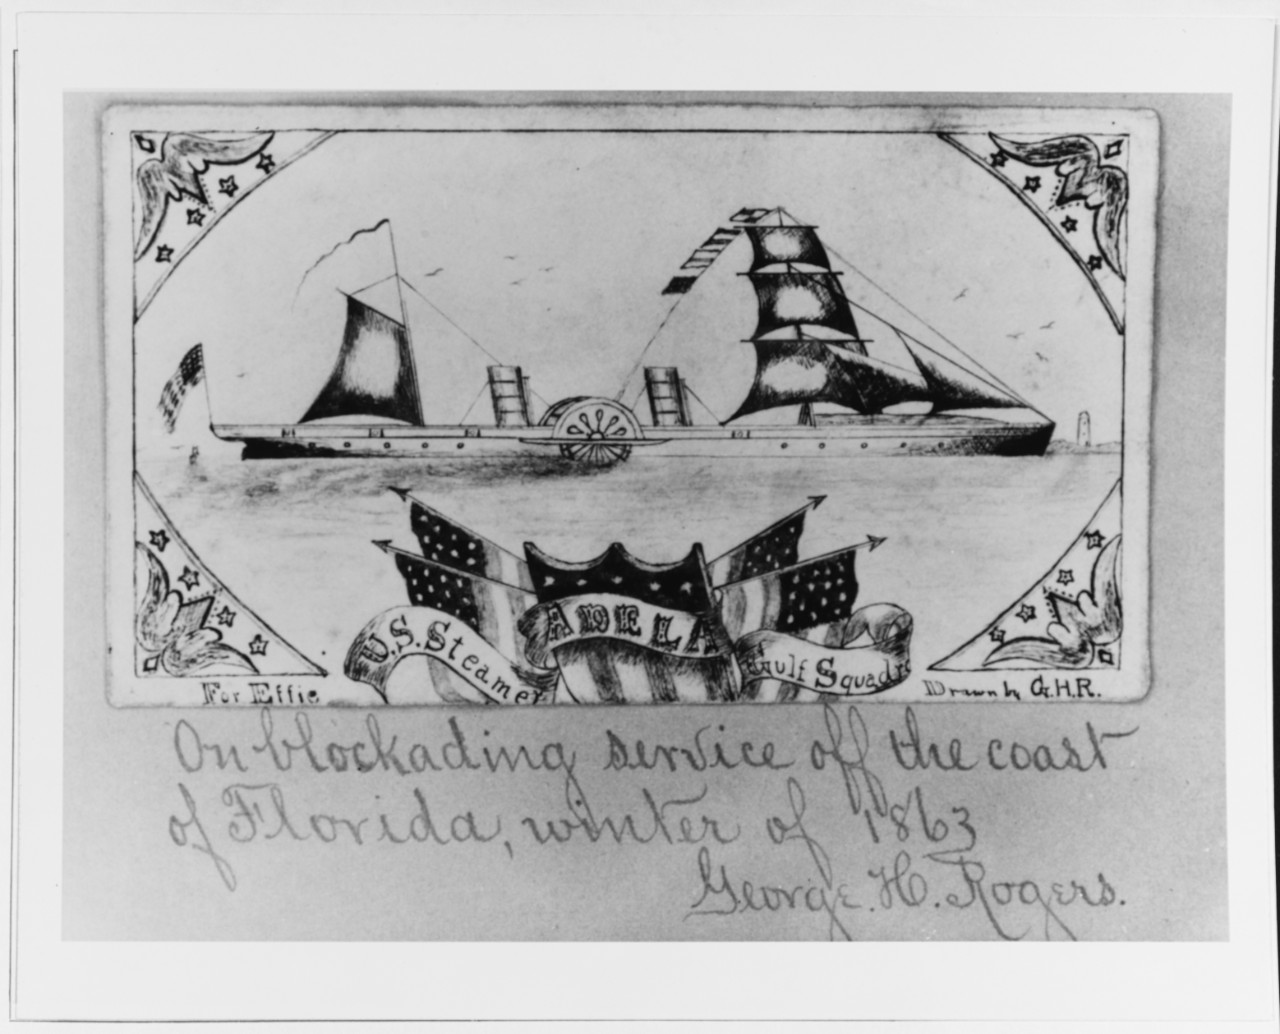 U.S. Steamer
ADELA
Gulf Squadr
For Effie
Drawn by G.H.R.
On blockading service off the coast
of Florida, winter of 1863
George. H. Rogers.